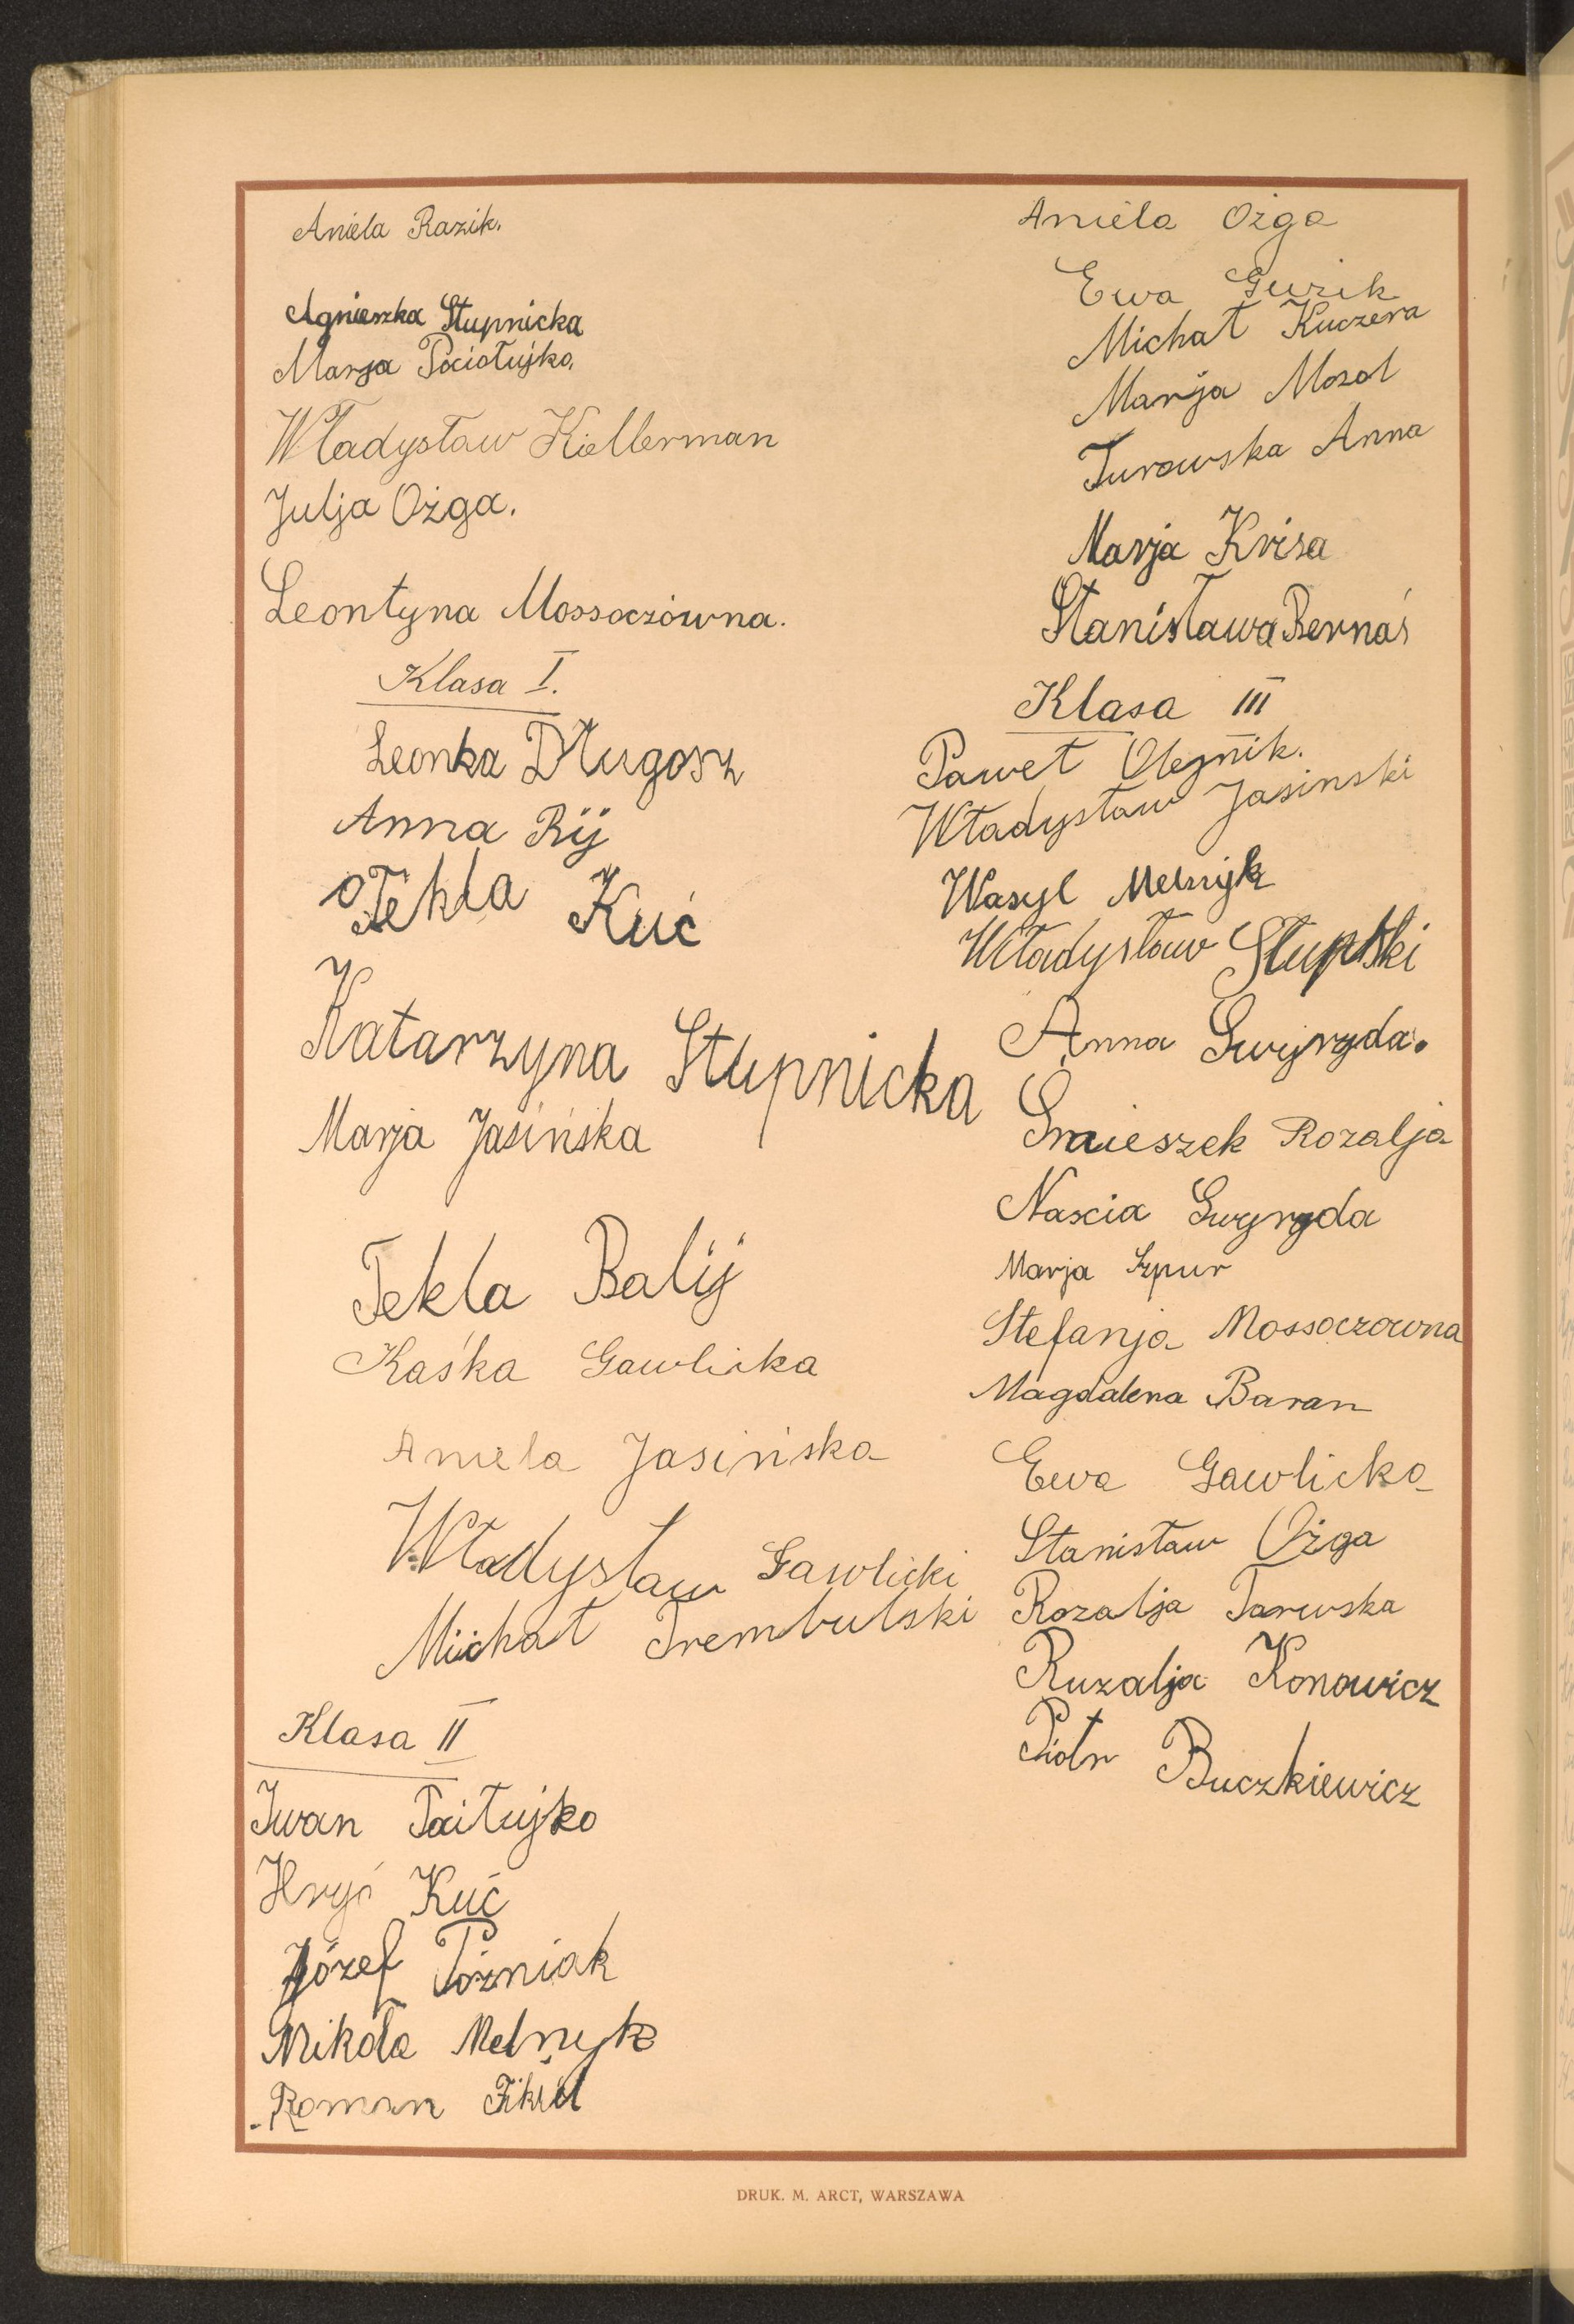 Aniela Razik.
Agnieszka Stupnicka
Marja Paciołujko,
Władysław Kiellerman
Julja Ożga.
Leontyna Mossoczówna.
Klasa I.
Leonka Długosz
Anna Rij
Tekla Kuć
Katarzyna Stupnicka
Marja Jasińska
Tekla Balij
Kaśka Gawlicka
Aniela Jasińska
Władysław Gawlicki
Michał Trembulski
Klasa II
Iwan Paitujko
Hryś Kuć
Józef Poźniak
Mikoła Melnyk
Roman
Aniela Ożga
Ewa Guzik
Michał Kuczera
Marja Mozol
Turowska Anna
Marja Krisa
Stanisława Bernaś
Klasa III
Paweł Olejnik.
Władysław Jasinski
Wasyl Melnyk
Władysław Słupski
Anna Gwyrzda.
Śmieszek Rozalja
Nascia Gwyrzda
Marja Szpur
Stefanja Mossoczowna
Magdalena Baran
Ewa Gawlicka
Stanisław Ożga
Rozalja Tarwska
Ruzalja Konowicz
Piotr Buczkiewicz
DRUK. M. ARCT, WARSZAWA